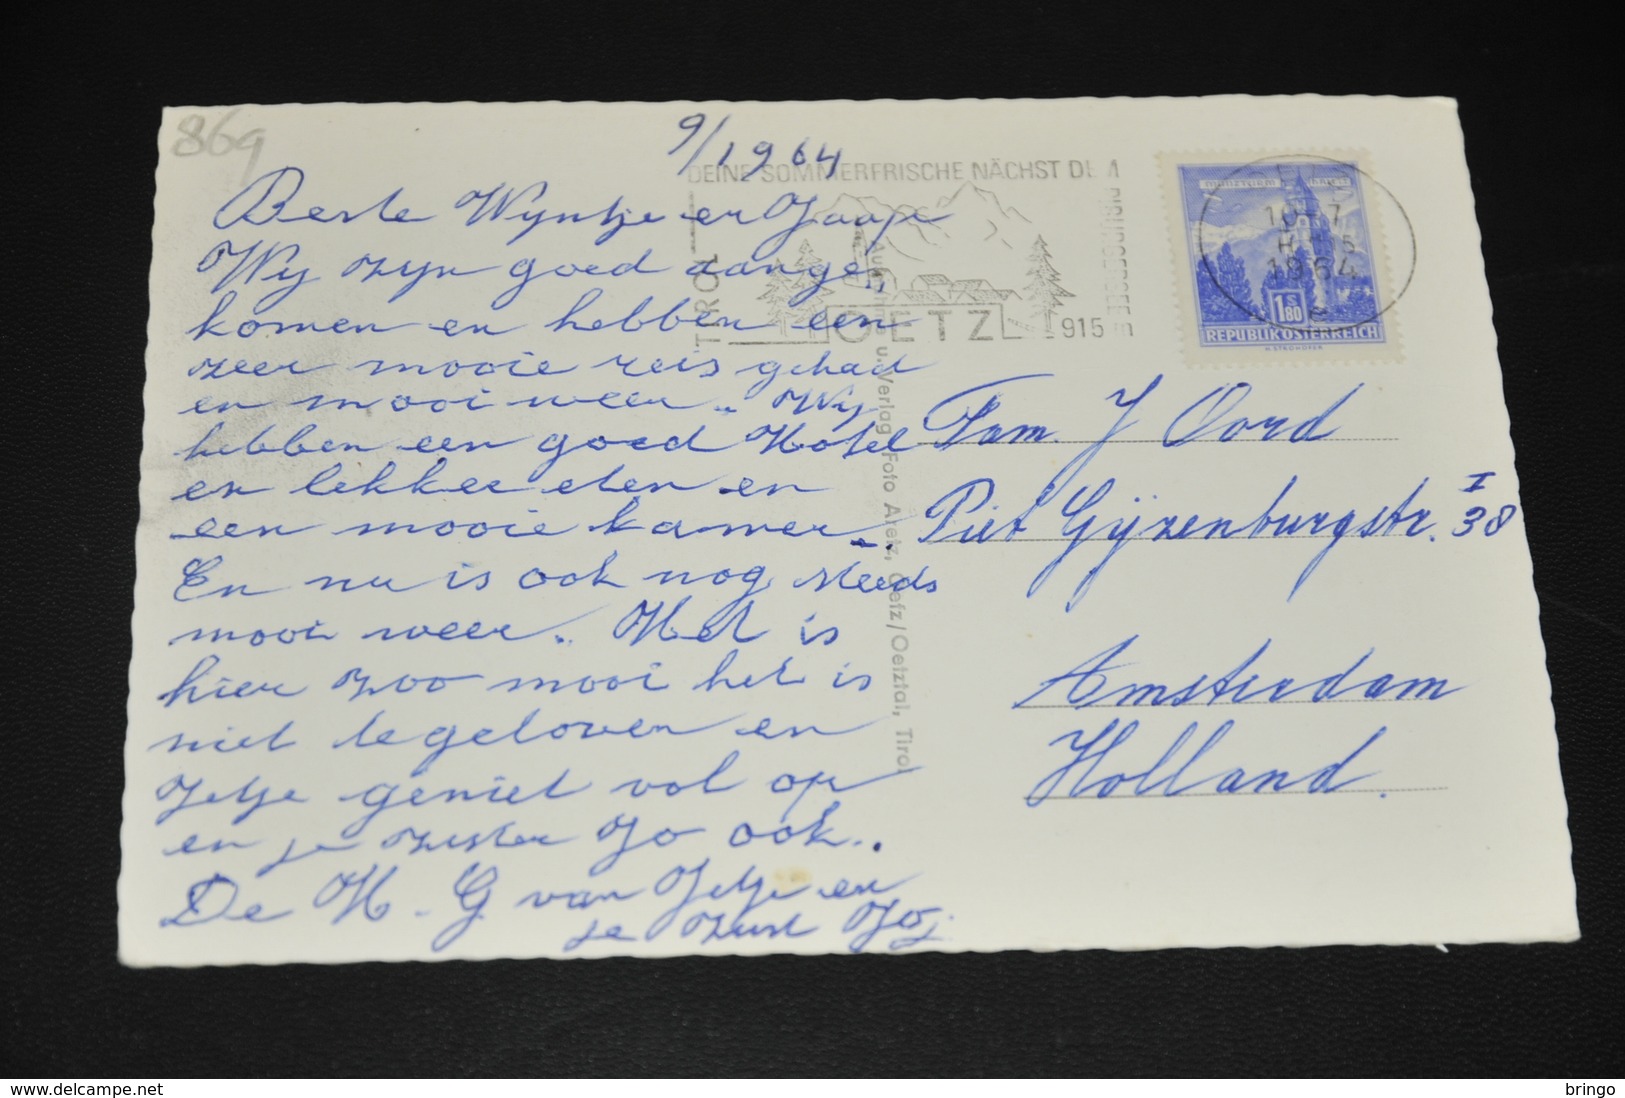 869
9/1964
DEINE SOMMERFRISCHE NÄCHST DEM
TIROL
OETZ
915
10-7
1964
1 S 80
REPUBLIK ÖSTERREICH
Beste Wyntje en Jaap
Wij zijn goed aange,
komen en hebben een
zeer mooie reis gehad
en mooi weer. Wij
hebben een goed Hotel
en lekker eten en
een mooie kamer.
En nu is ook nog steeds
mooi weer. Het is
hier zoo mooi het is
niet te geloven en
Jetje geniet vol op
en je zuster Jo ook.
De H. G van Jetje en
je zust Jo,
Fam. J Oord
Piet Gijzenburgstr. 38 I
Amsterdam
Holland.
Aufnahme u. Verlag Foto Aretz, Oetz/Oetztal, Tirol
delcampe.net
bringo